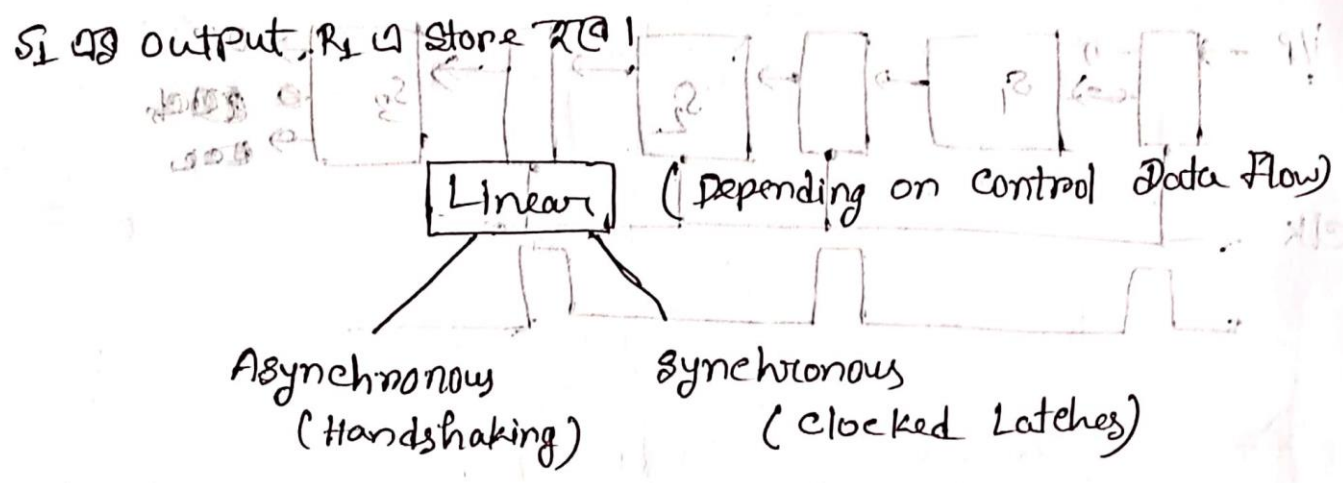 S1 এর output, R1 এ store হবে।
Linear (Depending on control Data Flow)
Asynchronous synchronous
(Handshaking) (clocked Latches)